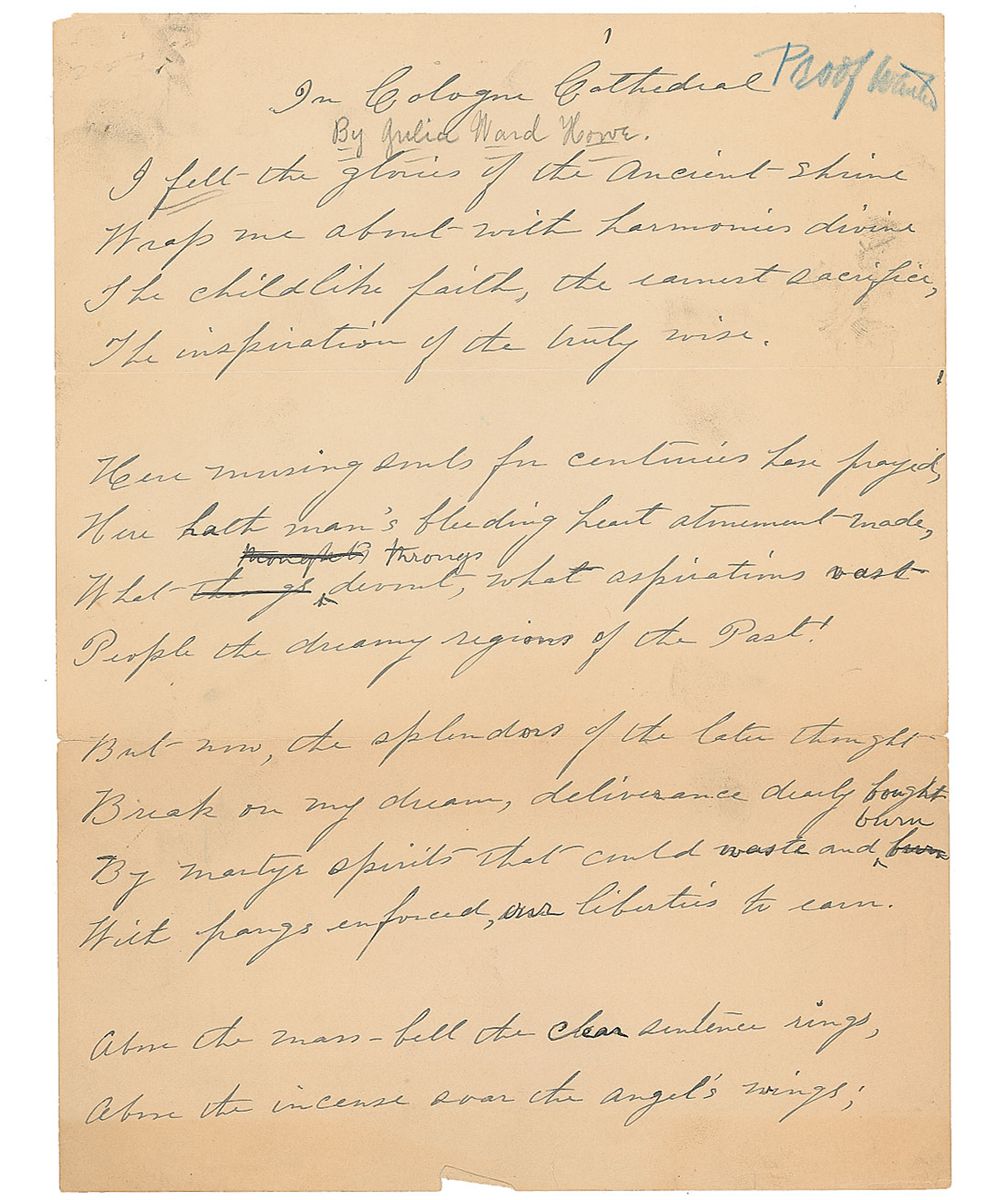 In Cologne Cathedral Proof Wanted
By Julia Ward Howe.
I felt the glories of the Ancient Shrine
Wrap me about with harmonies divine
The childlike faith, the earnest sacrifice,
The inspiration of the truly wise.
Here musing souls for centuries have prayed,
Here hath man's bleeding heart atonement made,
thoughts throngs
What things devout, what aspirations vast
People the dreamy regions of the Past!
But now, the splendors of the later thought
Break on my dream, deliverance dearly bought
burn
By martyr spirits that could waste and burn
With pangs enforced, our liberties to earn.
Above the mass-bell the clear sentence rings,
Above the incense soar the angel's wings;